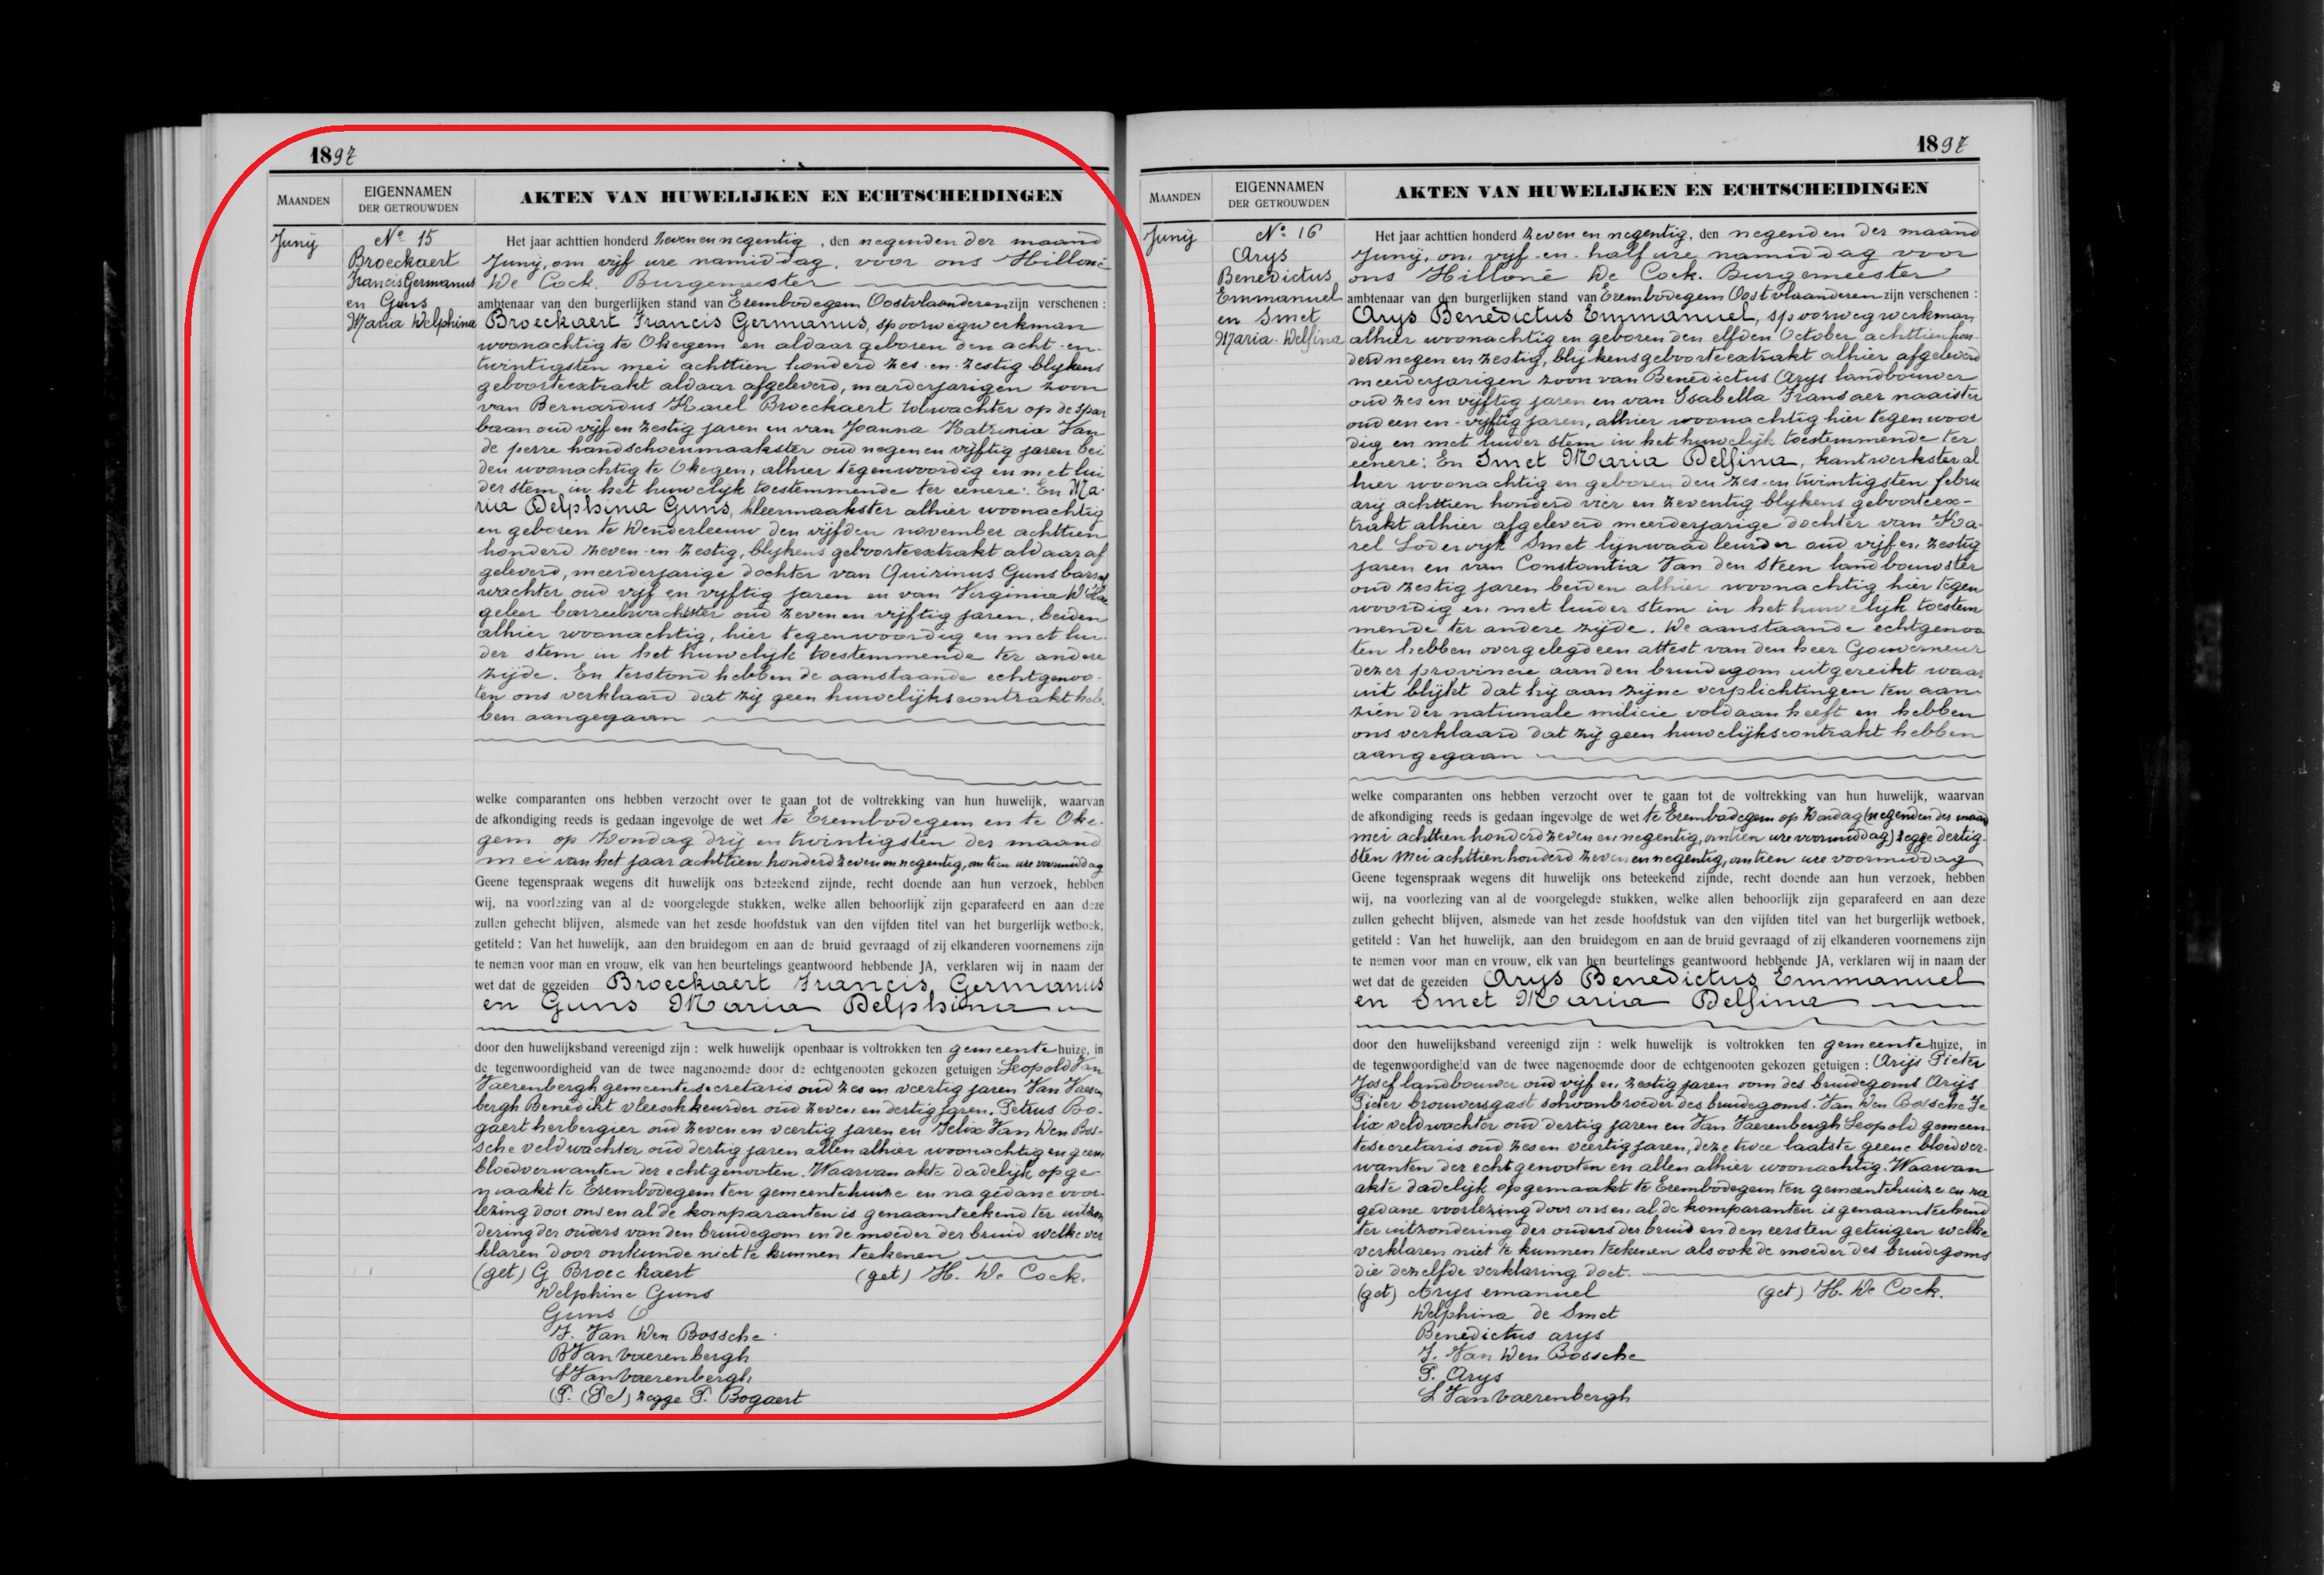 1897
MAANDEN
EIGENNAMEN
DER GETROUWDEN
AKTEN VAN HUWELIJKEN EN ECHTSCHEIDINGEN
Junij
No 15
Broeckaert
Francis Germanus
en Guns
Maria Delphina
Het jaar achttien honderd zeven en negentig, den negenden der maand
Junij, om vijf ure namiddag, voor ons Hilloné
De Cock. Burgemeester
ambtenaar van den burgerlijken stand van Erembodegem Oostvlaanderen zijn verschenen :
Broeckaert Francis Germanus, spoorwegwerkman
woonachtig te Okegem en aldaar geboren den acht-en-
twintigsten mei achttien honderd zes-en-zestig blijkens
geboorteextrakt aldaar afgeleverd, meerderjarigen zoon
van Bernardus Karel Broeckaert tolwachter op de spoor
baan oud vijf en zestig jaren en van Joanna Katrinia Van
de perre handschoenmaakster oud negen en vijftig jaren bei
den woonachtig te Okegem, alhier tegenwoordig en met lui
der stem in het huwelijk toestemmende ter eenere: En Ma-
ria Delphina Guns, kleermaakster alhier woonachtig
en geboren te Denderleeuw den vijfden november achttien
honderd zeven-en-zestig, blijkens geboorteextrakt aldaar af
geleverd, meerderjarige dochter van Quirinus Guns
wachter oud vijf en vijftig jaren en van Virginia
geleer barreelwachtster oud zeven en vijftig jaren, beiden
alhier woonachtig, hier tegenwoordig en met lui-
der stem in het huwelijk toestemmende ter andere
zijde. En terstond hebben de aanstaande echtgenoo-
ten ons verklaard dat zij geen huwelijkscontrakt heb-
ben aangegaan
welke comparanten ons hebben verzocht over te gaan tot de voltrekking van hun huwelijk, waarvan
de afkondiging reeds is gedaan ingevolge de wet te Erembodegem en te Oke-
gem op Zondag drij en twintigsten der maand
mei van het jaar achttien honderd zeven en negentig, om tien ure voormiddag
Geene tegenspraak wegens dit huwelijk ons beteekend zijnde, recht doende aan hun verzoek, hebben
wij, na voorlezing van al de voorgelegde stukken, welke allen behoorlijk zijn geparafeerd en aan deze
zullen gehecht blijven, alsmede van het zesde hoofdstuk van den vijfden titel van het burgerlijk wetboek,
getiteld : Van het huwelijk, aan den bruidegom en aan de bruid gevraagd of zij elkanderen voornemens zijn
te nemen voor man en vrouw, elk van hen beurtelings geantwoord hebbende JA, verklaren wij in naam der
wet dat de gezeiden Broeckaert Francis Germanus
en Guns Maria Delphina
door den huwelijksband vereenigd zijn : welk huwelijk openbaar is voltrokken ten gemeentehuize, in
de tegenwoordigheid van de twee nagenoemde door de echtgenooten gekozen getuigen : Leopold Van
Vaerenbergh gemeentesecretaris oud zes en veertig jaren Van Vaeren
bergh Benedikt vleeschkeurder oud zeven en dertig jaren, Petrus Bo-
gaert herbergier oud zeven en veertig jaren en Felix Van Den Bos-
sche veldwachter oud dertig jaren allen alhier woonachtig en geene
bloedverwanten der echtgenooten. Waarvan akte dadelijk opge
maakt te Erembodegem ten gemeentehuize en na gedane voor-
lezing door ons en al de komparanten is genaamteekend ter uitzon
dering der ouders van den bruidegom en de moeder der bruid welke ver
klaren door onkunde niet te kunnen teekenen
(get) G Broeckaert (get) H. De Cock.
Delphine Guns
Guns Q
F. Van Den Bossche
B Van vaerenbergh
L Van vaerenbergh
(P. (Pe) zegge P. Bogaert
1897
MAANDEN
EIGENNAMEN
DER GETROUWDEN
AKTEN VAN HUWELIJKEN EN ECHTSCHEIDINGEN
Junij
No 16
Arys
Benedictus
Emmanuel
en Smet
Maria-Delfina
Het jaar achttien honderd zeven en negentig, den negenden der maand
Junij, om vijf-en-half ure namiddag voor
ons Hilloné De Cock. Burgemeester
ambtenaar van den burgerlijken stand van Erembodegem Oostvlaanderen zijn verschenen :
Arys Benedictus Emmanuel, spoorwegwerkman
alhier woonachtig en geboren den elfden October achttien hon-
derd negen en zestig, blijkens geboorteextrakt alhier afgeleverd
meerderjarigen zoon van Benedictus Arys landbouwer
oud zes en vijftig jaren en van Isabella Fransaer naaister
oud een en-vijftig jaren, alhier woonachtig hier tegenwoor
dig en met luider stem in het huwelijk toestemmende ter
eenere: En Smet Maria Delfina, kantwerkster al
hier woonachtig en geboren den zes-en twintigsten febru
arij achttien honderd vier en zeventig blijkens geboorteex-
trakt alhier afgeleverd meerderjarige dochter van Ka-
rel Lodewijk Smet lijnwaadleurder oud vijf en zestig
jaren en van Constantia Van den Steen landbouwster
oud zestig jaren beiden alhier woonachtig hier tegen
woordig en met luider stem in het huwelijk toestem
mende ter andere zijde. De aanstaande echtgenoo
ten hebben overgelegd een attest van den heer Gouverneur
dezer provincie aan den bruidegom uitgereikt waar
uit blijkt dat hij aan zijne verplichtingen ten aan-
zien der nationale milicie voldaan heeft en hebben
ons verklaard dat zij geen huwelijkscontrakt hebben
aangegaan
welke comparanten ons hebben verzocht over te gaan tot de voltrekking van hun huwelijk, waarvan
de afkondiging reeds is gedaan ingevolge de wet te Erembodegem op Zondag (negenden der maand
mei achttien honderd zeven en negentig, om tien ure voormiddag) zegge dertig-
sten Mei achttien honderd zeven en negentig, om tien ure voormiddag
Geene tegenspraak wegens dit huwelijk ons beteekend zijnde, recht doende aan hun verzoek, hebben
wij, na voorlezing van al de voorgelegde stukken, welke allen behoorlijk zijn geparafeerd en aan deze
zullen gehecht blijven, alsmede van het zesde hoofdstuk van den vijfden titel van het burgerlijk wetboek,
getiteld : Van het huwelijk, aan den bruidegom en aan de bruid gevraagd of zij elkanderen voornemens zijn
te nemen voor man en vrouw, elk van hen beurtelings geantwoord hebbende JA, verklaren wij in naam der
wet dat de gezeiden Arys Benedictus Emmanuel
en Smet Maria Delfina
door den huwelijksband vereenigd zijn : welk huwelijk is voltrokken ten gemeentehuize, in
de tegenwoordigheid van de twee nagenoemde door de echtgenooten gekozen getuigen : Arijs Pieter
Josef landbouwer oud vijf en zestig jaren oom des bruidegoms Arijs
Pieter brouwersgast schoonbroeder des bruidegoms. Van Den Bossche Fe
lix veldwachter oud dertig jaren en Van Vaerenbergh Leopold gemeen-
tesecretaris oud zes en veertig jaren, deze twee laatste geene bloedver-
wanten der echtgenooten en allen alhier woonachtig. Waarvan
akte dadelijk opgemaakt te Erembodegem ten gemeentehuize en na
gedane voorlezing door ons en al de komparanten is genaamteekend
ter uitzondering der ouders der bruid en den eersten getuigen welke
verklaren niet te kunnen teekenen als ook de moeder des bruidegoms
die dezelfde verklaring doet.
(get) Arys emanuel (get) H. De Cock.
Delphina de Smet
Benedictus arys
F. Van Den Bossche
P. Arys
L Van vaerenbergh